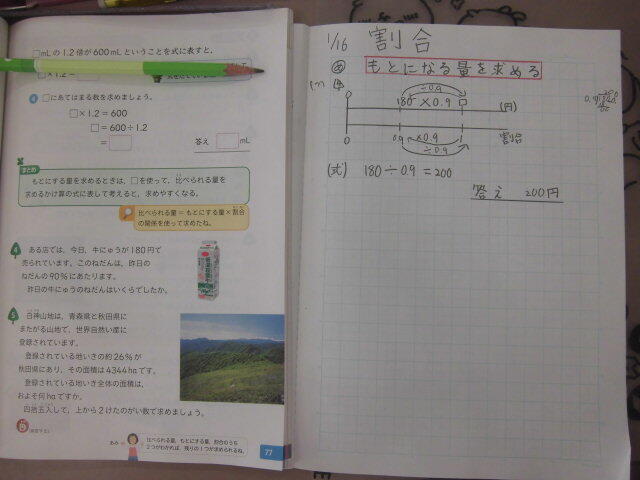 □mLの1.2倍が600mLということを式に表すと,
4 □にあてはまる数を求めましょう。
□×1.2=600
□=600÷1.2
=□
答え □mL
まとめ
もとにする量を求めるときは,□を使って,比べられる量を
求めるかけ算の式に表して考えると,求めやすくなる。
比べられる量=もとにする量×割合
の関係を使って求めたね。
4 ある店では,今日,牛にゅうが180円で
売られています。このねだんは,昨日の
ねだんの90%にあたります。
昨日の牛にゅうのねだんはいくらでしたか。
5 白神山地は,青森県と秋田県に
またがる山地で,世界自然い産に
登録されています。
登録されている地いきの約26%が
秋田県にあり,その面積は4344haです。
登録されている地いき全体の面積は,
およそ何haですか。
四捨五入して,上から2けたのがい数で求めましょう。
あみ
比べられる量,もとにする量,割合のうち
2つがわかれば,残りの1つが求められるね。
77
1/16 割合
め もとになる量を求める
÷0.9
0 180 ×0.9 □ (円)
0 0.9 ×0.9 割合
÷0.9
(式) 180÷0.9=200
答え 200円